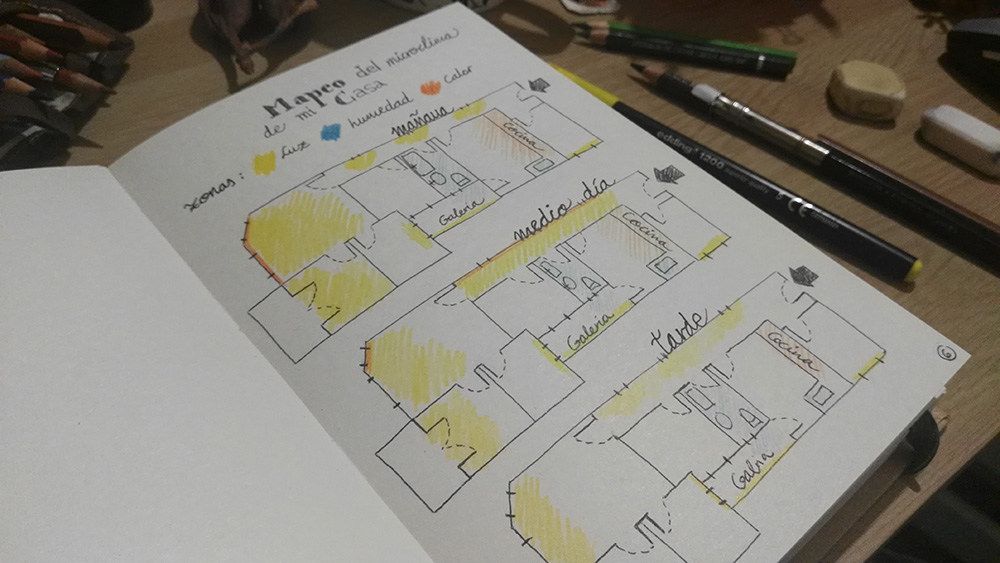 Mapeo del microclima
de mi Casa
zonas: Luz humedad Calor
mañana
Cocina
Galería
medio día
Cocina
Galería
tarde
Cocina
Galería
6
edding 1200